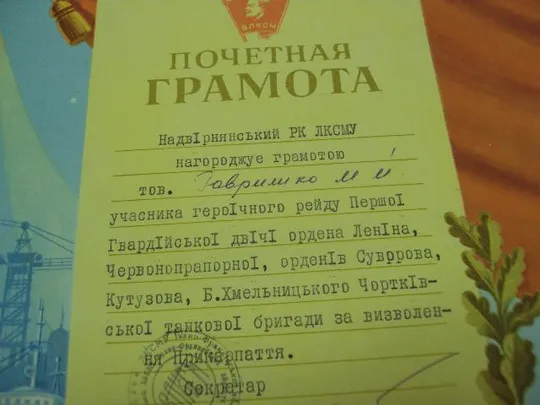 ВЛКСМ
ПОЧЕТНАЯ
ГРАМОТА
НадвІрнянський РК ЛКСМУ
нагороджує грамотою
тов. Гаврилко М Й
учасника героІчного рейду ПершоІ
ГвардІйськоІ двІчІ ордена ЛенІна,
ЧервонопрапорноІ, орденІв Суворова,
Кутузова, Б.Хмельницького ЧорткІв-
ськоІ танковоІ бригади за визволен-
ня Прикарпаття.
Секретар